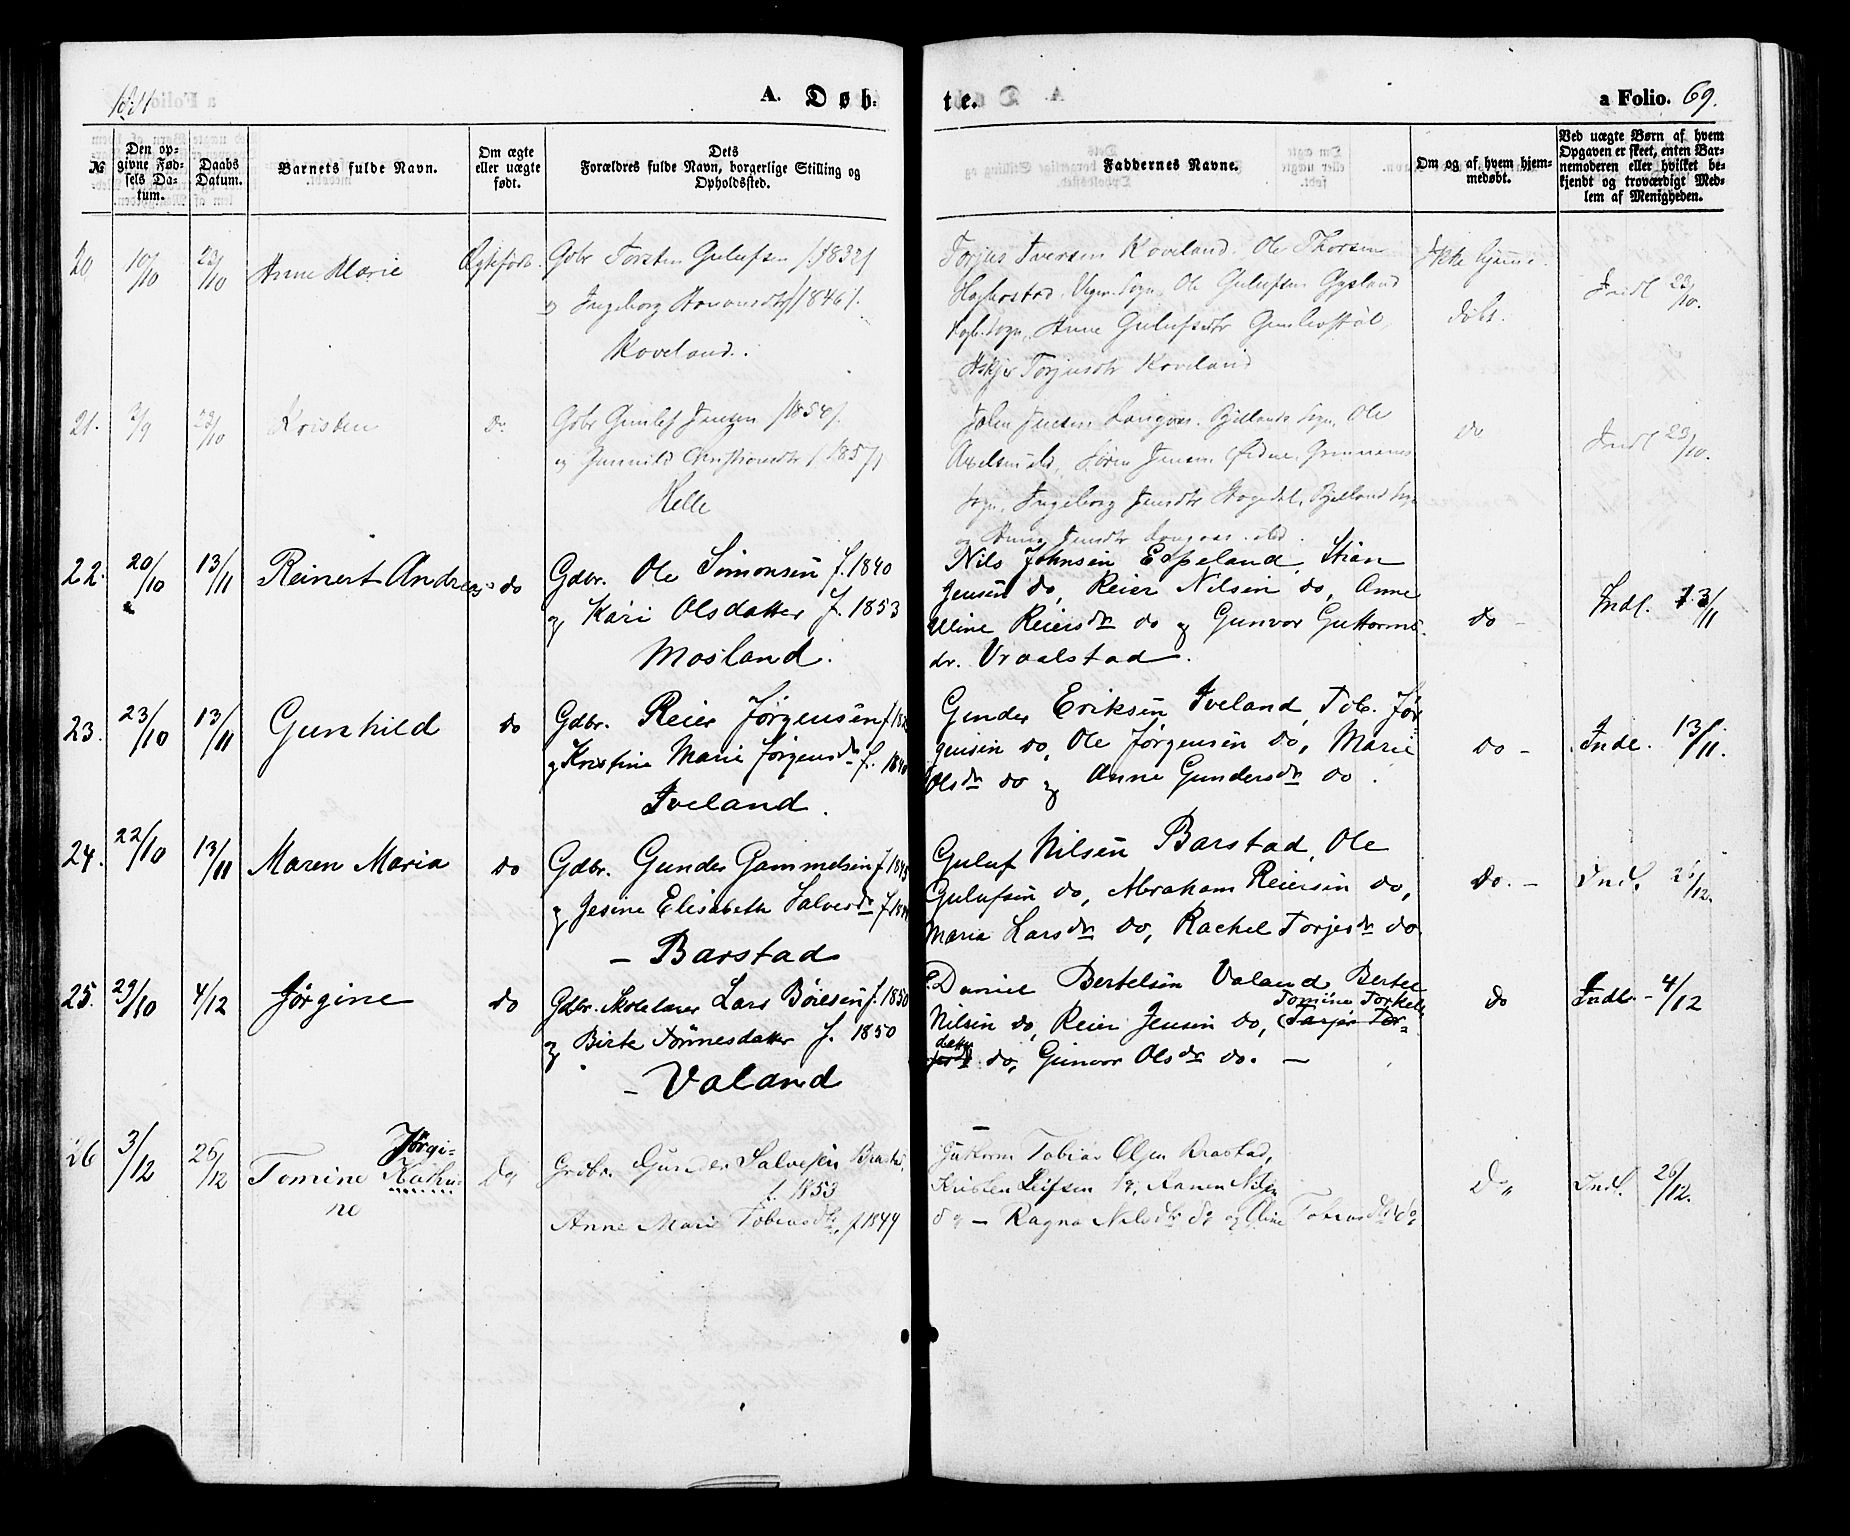 1881
A. Døb- te.
a Folio. 69.
№
Den opgivne Fødsels Datum.
Daabs Datum.
Barnets fulde Navn.
Om ægte eller uægte født.
Dets Forældres fulde Navn, borgerlige Stilling og Opholdssted.
Faddernes Navne.
Om og af hvem hjemmedøbt.
Ved uægte Børn af hvem Opgaven er skeet, enten Barnemoderen eller hvilket bekjendt og troværdigt Medlem af Menigheden.
20 10/10 23/10 Anne Marie Ægtefødt.
Gdbr Torsten Gulufsen /f 1832/
og Ingeborg /1846/.
Koveland.
Torjus Iversen Koveland. Ole Thorsen
Sogn, Ole Gulufsen
Sogn, Anne Gulufsdtr
Torjusdtr Koveland
Ikke hjemme
døbt.
Indl 23/10.
21. 2/9 23/10 Kristen do
Gdbr Gunlef Jensen /1854/.
og Gunnild Christiansdtr /1857/
Helle
John Jensen Bjellands Sogn, Ole
Søren Jensen
Sogn, Ingeborg Jensdtr Bjelland Sogn
og Jensdtr
do
Indl 23/10.
22. 20/10 13/11 Reinert Andreas do
Gdbr. Ole Simonsen f. 1840
og Kari Olsdatter f. 1853
Mosland.
Nils Johnsen Espeland, Stian
Jensen do, Reier Nilsen do, Anne
Oline Reiersdtr do og Gunvor Guttorms-
dr. Vraalstad.
do -
Indl. 13/11
23. 23/10 13/11 Gunhild do
Gdbr. Reier Jørgensen
og Kristine Marie Jørgensdr
Iveland.
Gunder Eriksen Iveland, Tob. Jør-
gensen do, Ole Jørgensen do, Marie
Olsdr do og Anne Gundersdr do.
do -
Indl. 13/11.
24. 22/10 13/11 Maren Maria do
Gdbr. Gunder Gammelsen f. 1845
og Jesine Elisabeth Salvesdr
- Barstad
Guluf Nilsen Barstad, Ole
Gulufsen do, Abraham Reiersen do,
Maria Larsdr do, Rachel Torjesdr do
Do. -
Indl. 26/12.
25. 29/10 4/12 Jørgine do
Gdbr. Skolelærer Lars Børesen f. 1850
og Birte Tønnesdatter f. 1850
- Valand
Daniel Bertelsen Valand, Bertel
Tomine Torkels
Nilsen do, Reier Jensen do, Torjer Tor-
datter do, Gunvor Olsdr do. -
do
Indl. - 4/12
26 3/12 26/12 Tomine Jørgi-
ne Kathri do
Grdbr. Gunder Salvesen
f. 1853
Anne Marie Tobiasdtr, f 1849
Guttorm Tobias Olsen Braastad,
Kristen Leifsen do, Aanen Nilsen
do - Ragna Nilsdtr do og Oline Tobiasdtr do
Do
Indl. 26/12.